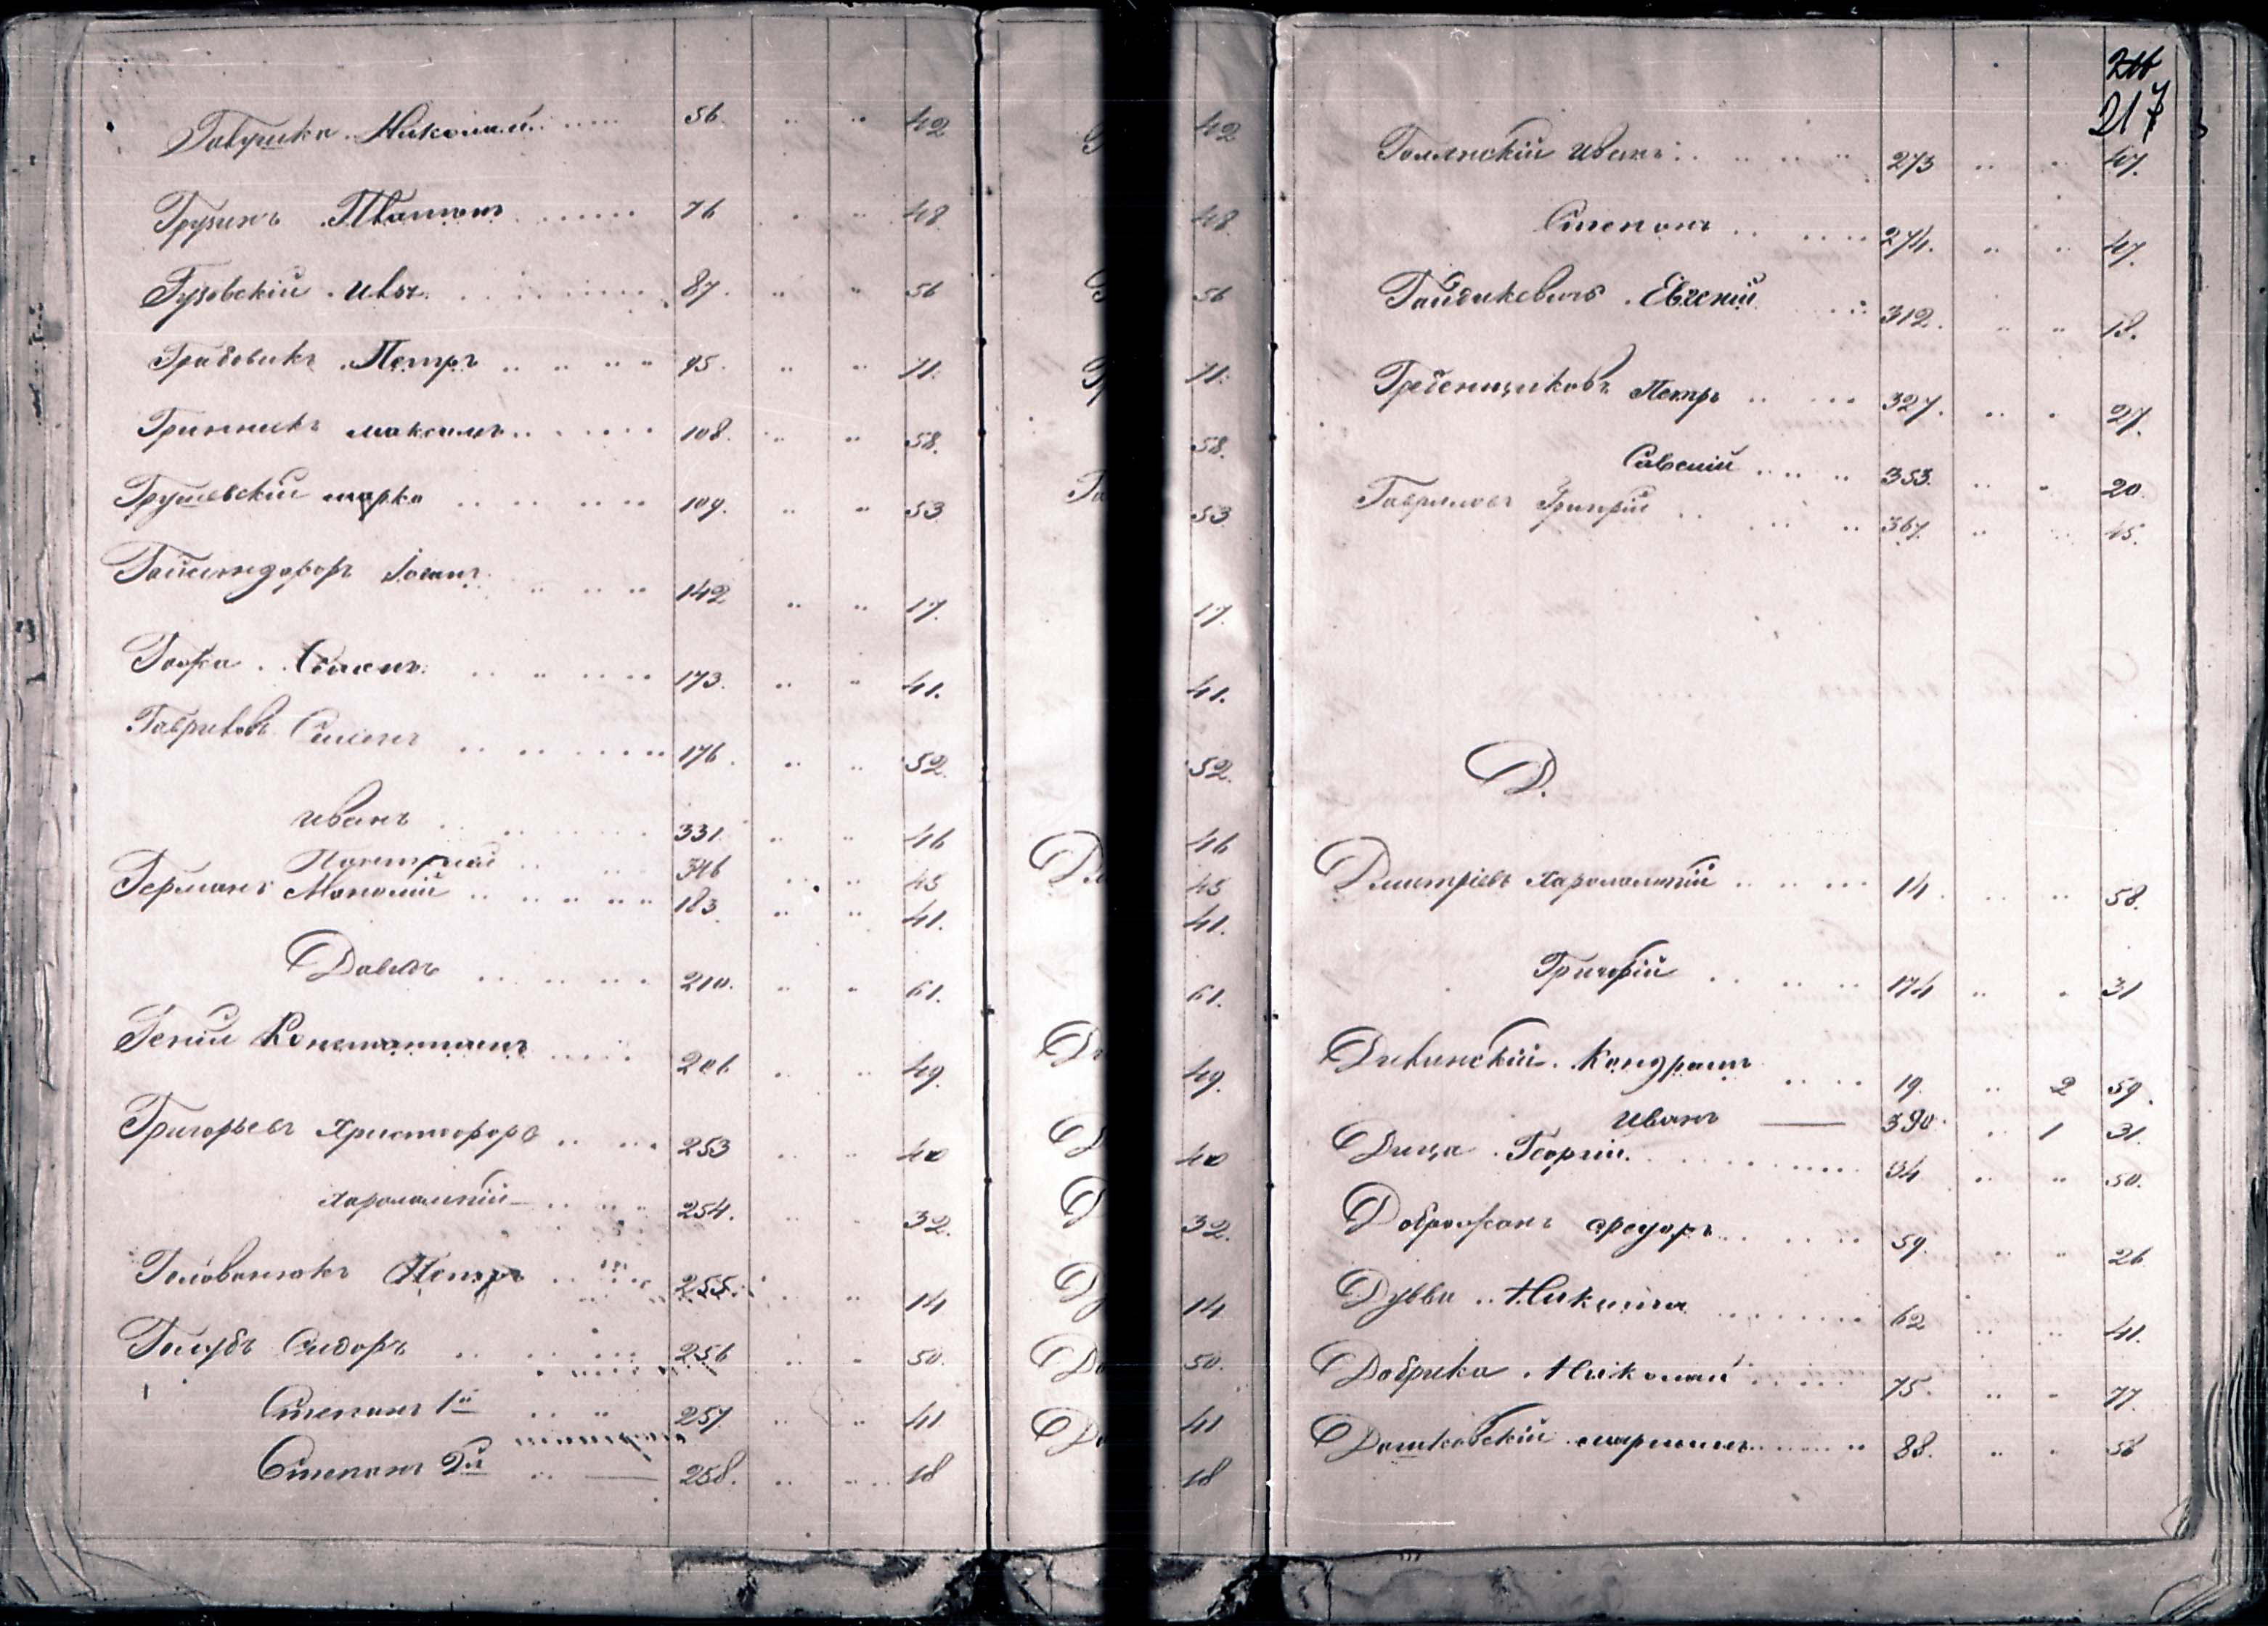 Гаврика Николай 56. 42
Грузинъ Платонъ 76 48
Гузовскій Ивъ 87. 56
Грабовикъ Петръ 95. 71.
Гринникъ Максимъ 108. 58.
Грушевскій Марко 109. 53
Іоганъ 142 17.
173. 41.
Гавриловъ Семенъ 176. 52.
Иванъ 331. 46
Дмитрій 346 45
Германъ Манолій 183 41.
Давидъ 210. 61.
Геній Константинъ 206 49.
Григорьевъ Христофоръ 253 40
Харолампій 254. 32.
Голованюкъ Петръ 255. 14
Голубъ Сидоръ 256 50.
Степанъ 1й 257. 41
Степанъ 2й 258. 18
216
217
Голянскій Иванъ 273 47.
Степанъ 274. 47.
Гайдикевичъ Евгеній 312. 18.
Гребенщиковъ Петръ 327. 27.
Савелій 353. 20.
Гавриловъ Григорій 367. 45.
Д.
Дмитріевъ Харолампій 14. 58.
Григорій 174 31
Дивинскій Кондратъ 19. 2 59.
Иванъ 390. 1 31.
Дица Георгій 34 50.
Доброжанъ Федоръ 59. 26
Дубва Никита 62 41.
Добрика Николай 75. 77.
Дошковскій Мартинъ 88. 58